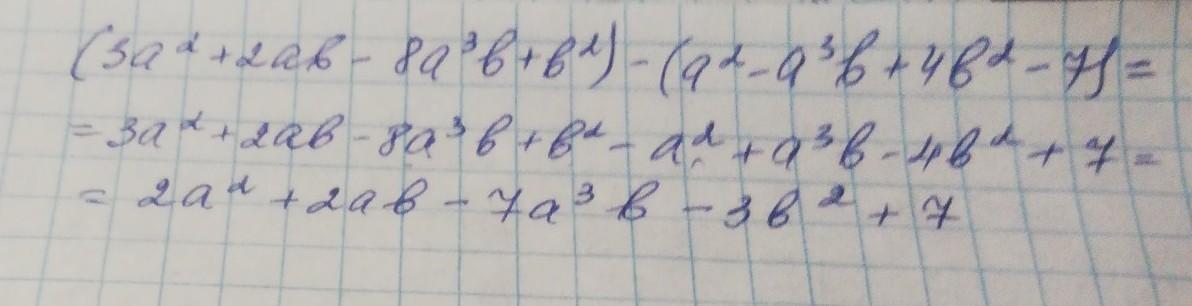 (3a² + 2ab - 8a³b + b²) - (a² - a³b + 4b² - 7) =
= 3a² + 2ab - 8a³b + b² - a² + a³b - 4b² + 7 =
= 2a² + 2ab - 7a³b - 3b² + 7